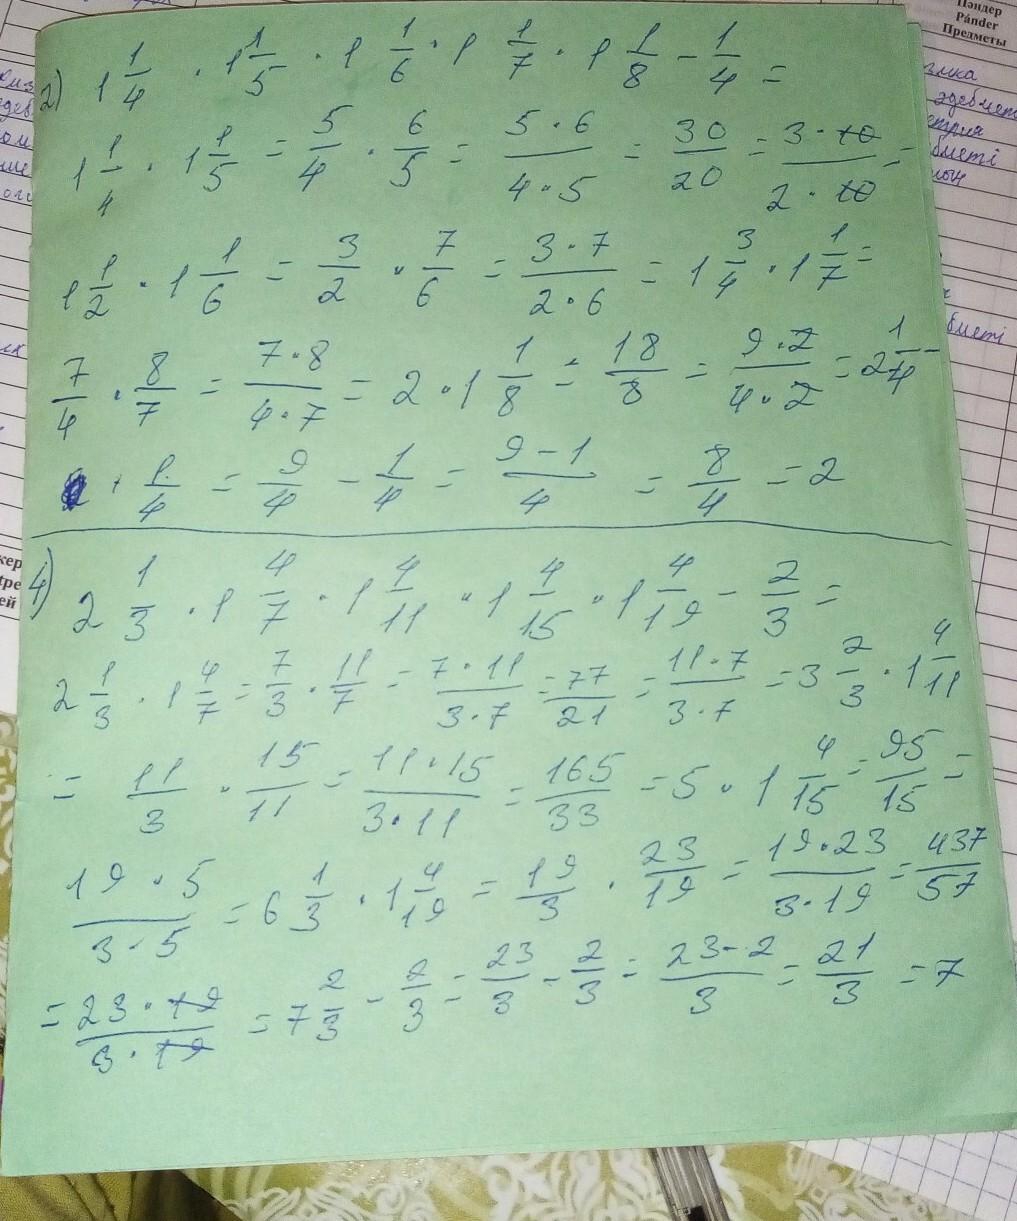 Пәндер
Pánder
Предметы
2) 1 1/4 · 1 1/5 · 1 1/6 · 1 1/7 · 1 1/8 - 1/4 =
1 1/4 · 1 1/5 = 5/4 · 6/5 = 5·6/4·5 = 30/20 = 3·10/2·10 =
1 1/2 · 1 1/6 = 3/2 · 7/6 = 3·7/2·6 = 1 3/4 · 1 1/7 =
7/4 · 8/7 = 7·8/4·7 = 2 · 1 1/8 = 18/8 = 9·2/4·2 = 2 1/4 -
1/4 = 9/4 - 1/4 = 9-1/4 = 8/4 = 2
4) 2 1/3 · 1 4/7 · 1 4/11 · 1 4/15 · 1 4/19 - 2/3 =
2 1/3 · 1 4/7 = 7/3 · 11/7 = 7·11/3·7 = 77/21 = 11·7/3·7 = 3 2/3 · 1 4/11
= 11/3 · 15/11 = 11·15/3·11 = 165/33 = 5 · 1 4/15 = 95/15 =
19·5/3·5 = 6 1/3 · 1 4/19 = 19/3 · 23/19 = 19·23/3·19 = 437/57
= 23·19/3·19 = 7 2/3 - 2/3 = 23/3 - 2/3 = 23-2/3 = 21/3 = 7